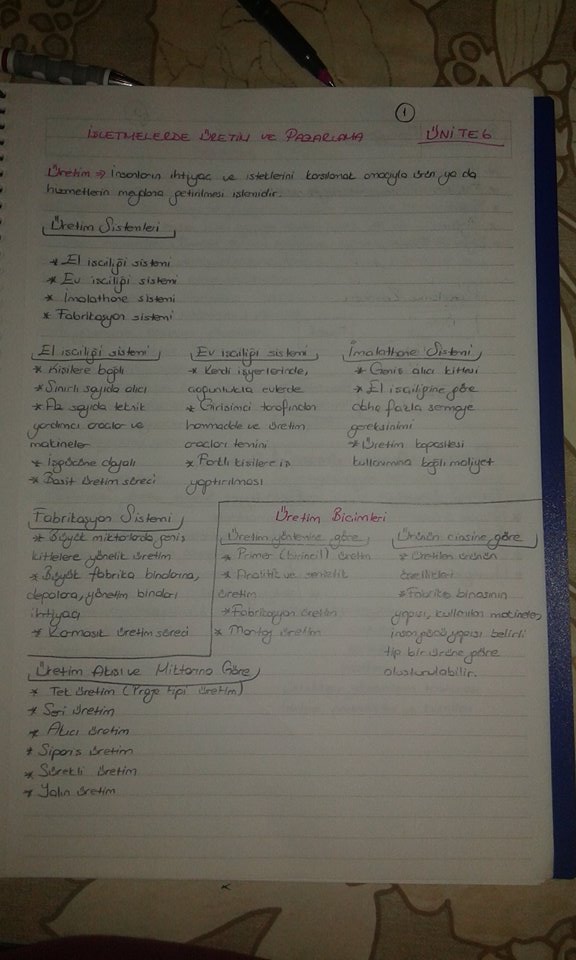 1
İŞLETMELERDE ÜRETİM VE PAZARLAMA
ÜNİTE 6
Üretim ⇒ İnsanların ihtiyaç ve isteklerini karşılamak amacıyla ürün ya da
hizmetlerin meydana getirilmesi işlemidir.
Üretim Sistemleri
* El işçiliği sistemi
* Ev işçiliği sistemi
* İmalathane sistemi
* Fabrikasyon sistemi
El işçiliği sistemi
* Kişilere bağlı
* Sınırlı sayıda alıcı
* Az sayıda teknik
yardımcı araçlar ve
makineler
* İşgücüne dayalı
* Basit üretim süreci
Ev işçiliği sistemi
* Kendi işyerlerinde,
çoğunlukla evlerde
* Girişimci tarafından
hammadde ve üretim
araçları temini
* Farklı kişilere iş
yaptırılması
İmalathane Sistemi
* Geniş alıcı kitlesi
* El işçiliğine göre
daha fazla sermaye
gereksinimi
* Üretim kapasitesi
kullanımına bağlı maliyet
Fabrikasyon Sistemi
* Büyük miktarlarda geniş
kitlelere yönelik üretim
* Büyük fabrika binalarına,
depolara, yönetim binaları
ihtiyacı
* Karmaşık üretim süreci
Üretim Biçimleri
Üretim yöntemine göre
* Primer (birincil) üretim
* Analitik ve sentetik
üretim
* Fabrikasyon üretim
* Montaj üretim
Ürünün cinsine göre
* Üretilen ürünün
özellikleri
* Fabrika binasının
yapısı, kullanılan makineler,
insangücü yapısı belirli
tip bir ürüne göre
oluşturulabilir.
Üretim Akışı ve Miktarına Göre
* Tek üretim (Proje tipi üretim)
* Seri üretim
* Akıcı üretim
* Sipariş üretim
* Sürekli üretim
* Yalın üretim